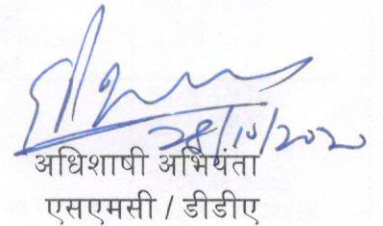 28/10/2020
अधिशाषी अभियंता
एसएमसी / डीडीए